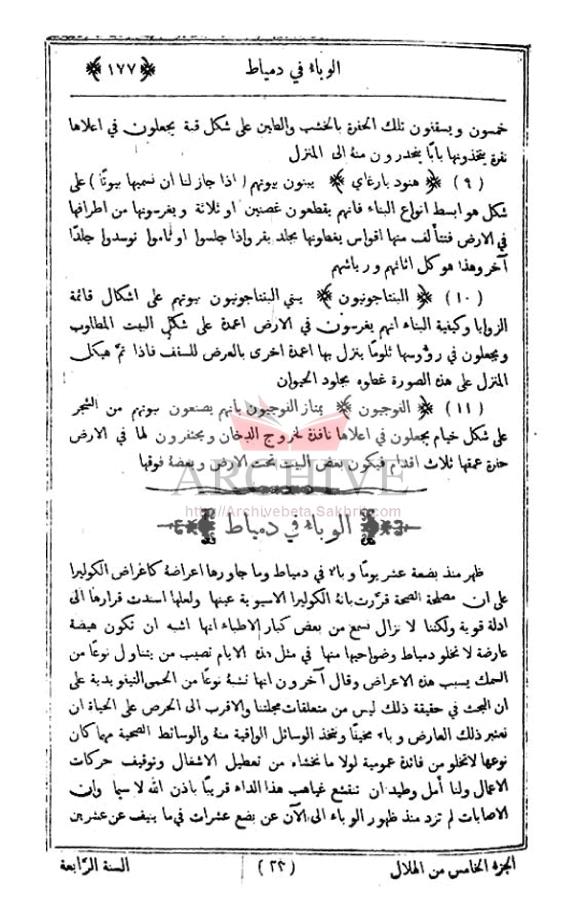 ﴿ ١٧٧ ﴾ الوباء في دمياط
خمسون ويسقفون تلك الحفرة بالخشب والطين على شكل قبة يجعلون في اعلاها
نقرة يتخذونها بابًا ينحدرون منهُ الى المنزل
(٩) ﴿ هنود بارغاي ﴾ يبنون بيوتهم (اذا جاز لنا ان نسميها بيوتًا) على
شكل هو ابسط انواع البناء فانهم يقطعون غصنين او ثلاثة ويغرسونها من اطرافها
في الارض فتتألف منها اقواس يغطونها بجلد بقر واذا جلسوا او ناموا توسدوا جلدًا
آخر وهذا هو كل اثاثهم ورياشهم
(١٠) ﴿ البنتاجونيون ﴾ يبني البنتاجونيون بيوتهم على اشكال قائمة
الزوايا وكيفية البناء انهم يغرسون في الارض اعمدة على شكل البيت المطلوب
ويجعلون في رؤوسها ثلومًا ينزل بها اعمدة اخرى بالعرض للسقف فاذا تمَّ هيكل
المنزل على هذه الصورة غطوه بجلود الحيوان
(١١) ﴿ الفوجيون ﴾ يمتاز الفوجيون بانهم يصنعون بيوتهم من الشجر
على شكل خيام يجعلون في اعلاها نافذة لخروج الدخان ويحتفرون لها في الارض
حفرة عمقها ثلاث اقدام فيكون بعض البيت تحت الارض وبعضهُ فوقها
ARCHIVE
http://Archivebeta.Sakhrit.com
الوباء في دمياط
ظهر منذ بضعة عشر يومًا وباء في دمياط وما جاورها اعراضهُ كاعراض الكوليرا
على ان مصلحة الصحة قرَّرت بانهُ الكوليرا الاسيوية عينها ولعلها اسندت قرارها الى
ادلة قوية ولكننا لا نزال نسمع من بعض كبار الاطباء انها اشبه ان تكون هيضة
عارضة لا تخلو دمياط وضواحيها منها في مثل هذه الايام تصيب من يتناول نوعًا من
السمك يسبب هذه الاعراض وقال آخرون انها تشبه نوعًا من الحمى التيفويدية على
ان البحث في حقيقة ذلك ليس من متعلقات مجلتنا والاقرب الى الحرص على الحياة ان
نعتبر ذلك العارض وباء مخيفًا ونتخذ الوسائل الواقية منهُ والوسائط الصحية مهما كان
نوعها لا تخلو من فائدة عمومية لولا ما نخشاه من تعطيل الاشغال وتوقيف حركات
الاعمال ولنا أمل وطيد ان تنقشع غياهب هذا الداء قريبًا باذن الله لا سيما وان
الاصابات لم تزد منذ ظهور الوباء الى الآن عن بضع عشرات في ما ينيف عن عشرين
الجزء الخامس من الهلال (٢٣) السنة الرَّابعة